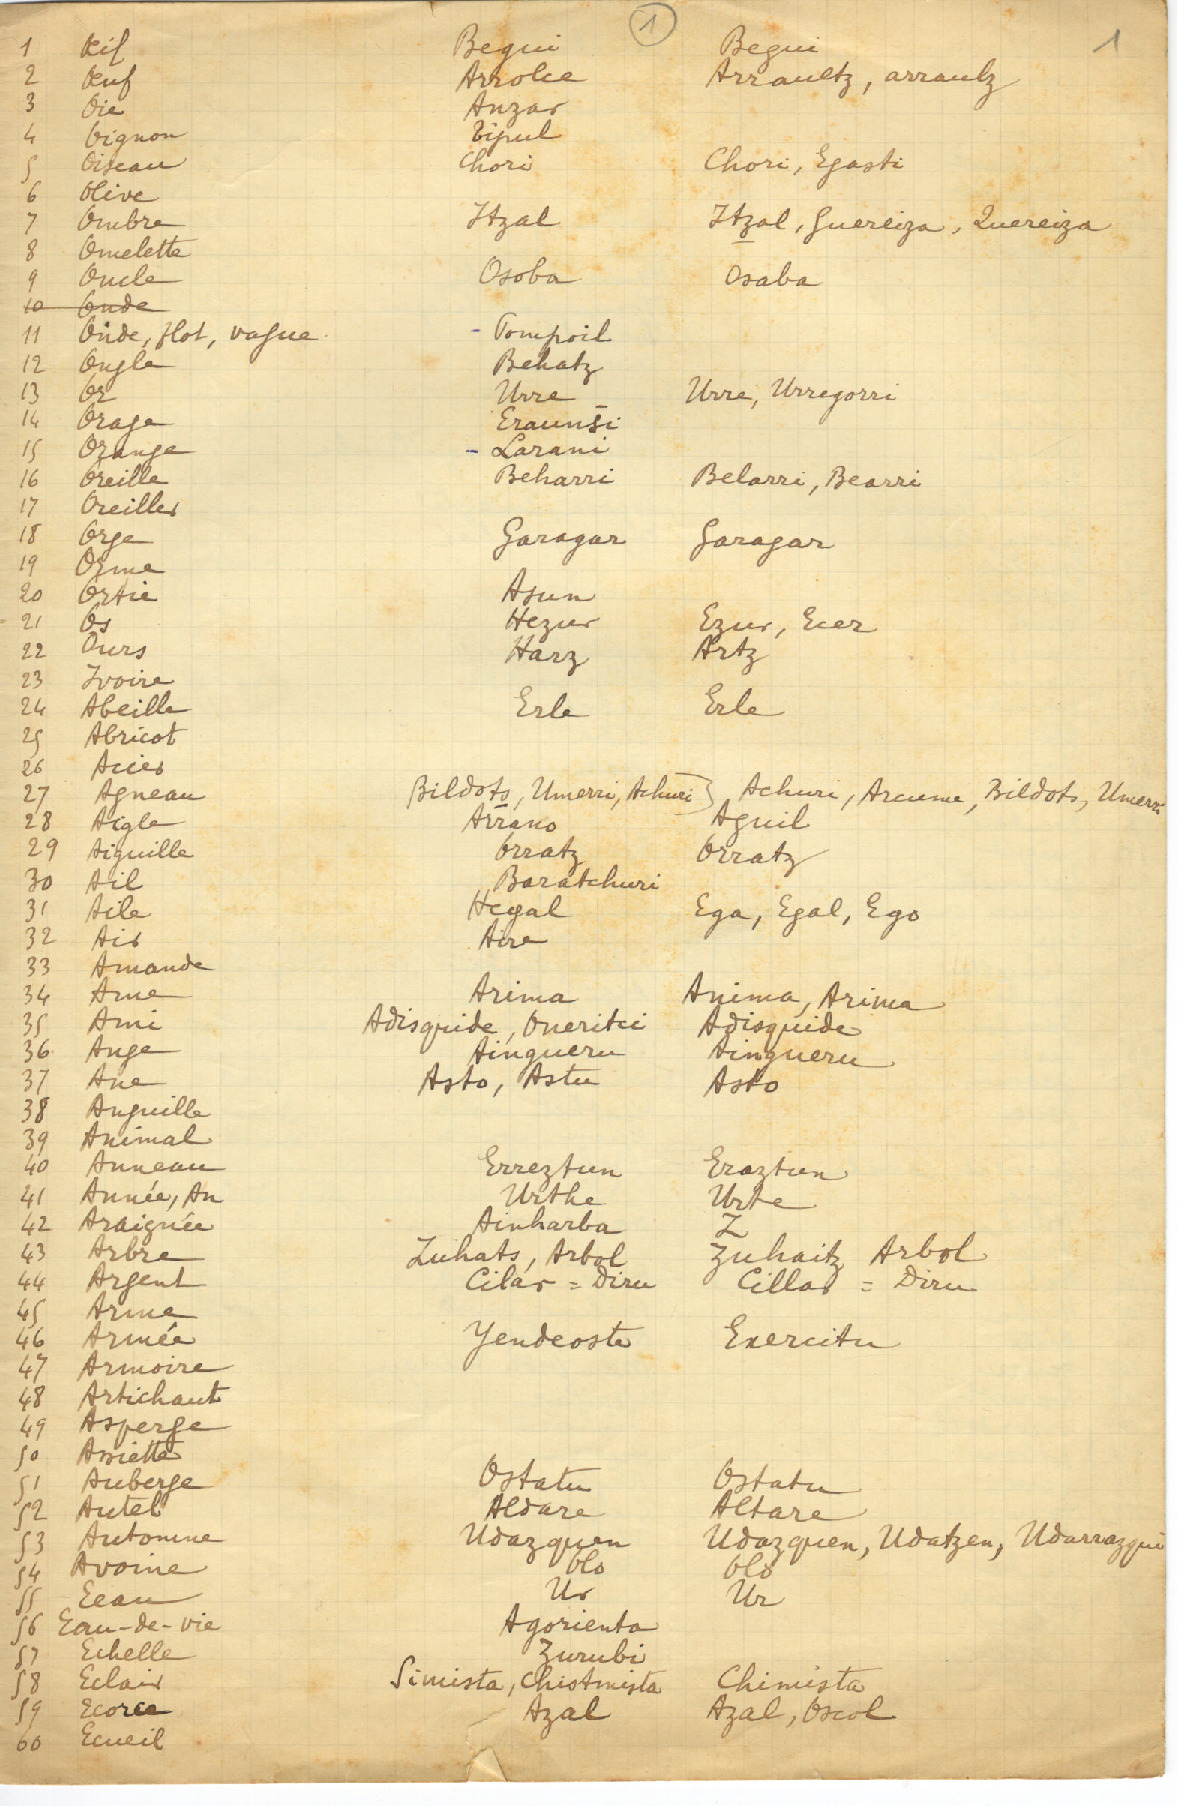 1 1
1 Œil Begui Begui
2 Œuf Arrolce Arraultz, arraulz
3 Oie Anzar
4 Oignon Tipul
5 Oiseau Chori Chori, Egasti
6 Olive
7 Ombre Itzal Itzal, Guereiza, Quereiza
8 Omelette
9 Oncle Osoba Osaba
10 Onde
11 Onde, flot, vague - Tompoil
12 Ongle Behatz
13 Or Urre Urre, Urregorri
14 Orage Eraunsi
15 Orange - Larani
16 Oreille Beharri Belarri, Bearri
17 Oreiller
18 Orge Garagar Garagar
19 Orme
20 Ortie Asun
21 Os Hezur Ezur, Ecer
22 Ours Harz Artz
23 Ivoire
24 Abeille Erle Erle
25 Abricot
26 Acier
27 Agneau Bildots, Umerri, Achuri) Achuri, Arcume, Bildots, Umerri
28 Aigle Arrano Aguil
29 Aiguille Orratz Orratz
30 Ail Baratchuri
31 Aile Hegal Ega, Egal, Ego
32 Air Aire
33 Amande
34 Ame Arima Anima, Arima
35 Ami Adisquide, Oneritci Adisquide
36 Ange Aingueru Aingueru
37 Ane Asto, Astu Asto
38 Anguille
39 Animal
40 Anneau Erreztun Eraztun
41 Année, An Urthe Urte
42 Araignée Ainharba Z
43 Arbre Zuhats, Arbol Zuhaitz Arbol
44 Argent Cilar = Diru Cillar = Diru
45 Arme
46 Armée Yendeoste Exercitu
47 Armoire
48 Artichaut
49 Asperge
50 Assiette
51 Auberge Ostatu Ostatu
52 Autel Aldare Altare
53 Automne Udazquen Udazquen, Udatzen, Udarrazqui
54 Avoine Olo Olo
55 Eeau Ur Ur
56 Eau-de-vie Agorienta
57 Echelle Zurubi
58 Eclair Simista, Chistmista Chimista
59 Ecorce Azal Azal, Oscol
60 Ecueil